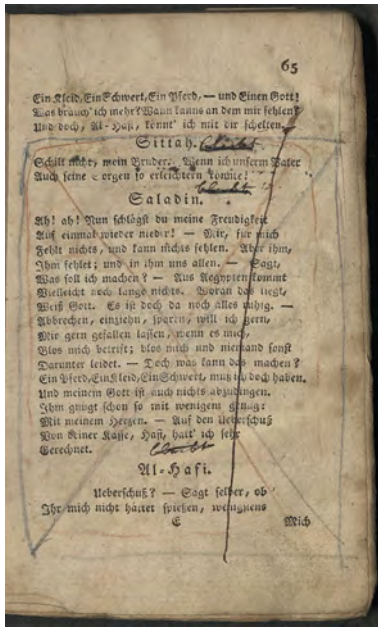 65
Ein Kleid, Ein Schwert, Ein Pferd, — und Einen Gott!
Was brauch' ich mehr? Wann kanns an dem mir fehlen?
Und doch, Al-Hafi, könnt' ich mit dir schelten.
Sittah. bleibt
Schilt nicht, mein Bruder. Wenn ich unserm Vater
Auch seine Sorgen so erleichtern könnte!
bleibt
Saladin.
Ah! ah! Nun schlägst du meine Freudigkeit
Auf einmal wieder nieder! — Mir, für mich
Fehlt nichts, und kann nichts fehlen. Aber ihm,
Ihm fehlet; und in ihm uns allen. — Sagt,
Was soll ich machen? — Aus Aegypten kommt
Vielleicht noch lange nichts. Woran das liegt,
Weiß Gott. Es ist doch da noch alles ruhig. —
Abbrechen, einziehn, sparen, will ich gern,
Mir gern gefallen lassen, wenn es mich,
Blos mich betrift; blos mich und niemand sonst
Darunter leidet. — Doch was kann das machen?
Ein Pferd, Ein Kleid, Ein Schwert, muß ich doch haben.
Und meinem Gott ist auch nichts abzudingen.
Ihm gnügt schon so mit wenigem genug:
Mit meinem Herzen. — Auf den Ueberschuß
Von Kiner Kasse, Hafi, hatt' ich sehr
Gerechnet. bleibt
Al-Hafi.
Ueberschuß? — Sagt selber, ob
Ihr mich nicht hättet spießen, wenigstens
E Mich